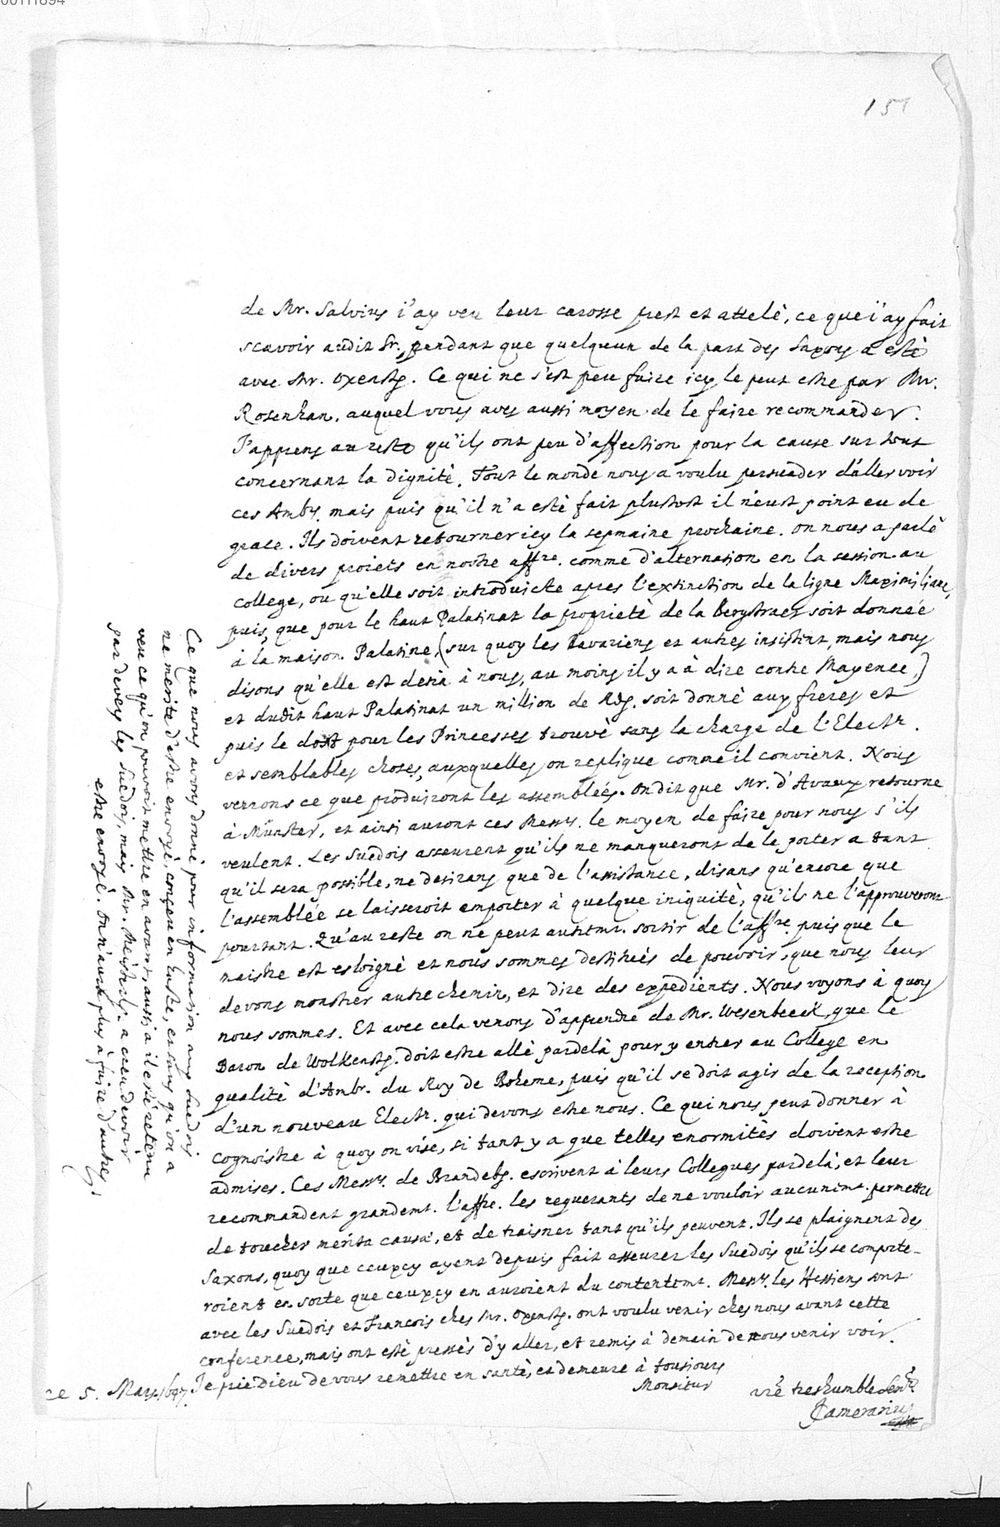 00111894
151
de Mr. Salvius i'ay veu leur carosse prest et attelé, ce que i'ay fait
scavoir audit Sr., pendant que quelqueun de la part des Saxons a esté
avec Mr. Oxenst. Ce qui ne s'est peu faire icy le peut estre par Mr.
Rosenhan, auquel vous aves aussi moyen de le faire recommander.
J'apprens au reste qu'ils ont peu d'affection pour la cause sur tout
concernant la dignité. Tout le monde nous a voulu persuader d'aller voir
ces Ambrs. mais puis qu'il n'a esté fait plustost il n'eust point eu de
grace. Ils doivent retourner icy la sepmaine prochaine. On nous a parlé
de divers proiets en nostre affre. comme d'alternation en la session au
college, ou qu'elle soit introduicte apres l'extinction de la ligne Maximiliane,
puis, que pour le haut Palatinat la proprieté de la Bergstraes soit donnée
à la maison Palatine, (sur quoy les Bavariens et autres insistent, mais nous
disons qu'elle est desia à nous, au moins il y a à dire contre Mayence,)
et dudit haut Palatinat un million de Rds. soit donné aux freres et
puis le dott pour les Princesses trouvé sans la charge de l'Electr.
et semblables choses, auxquelles on replique comme il convient. Nous
verrons ce que produiront les assemblées. On dit que Mr. d'Avaux retourne
à Münster, et ainsi auront ces Messrs. le moyen de faire pour nous s'ils
veulent. Les Suedois asseurent qu'ils ne manqueront de le porter a tant
qu'il sera possible, ne desirans que de l'assistance, disans qu'encore que
l'assemblée se laisseroit emporter à quelque iniquité, qu'ils ne l'approuveront
pourtant. Qu'au reste on ne peut autremt. sortir de l'affre. puis que le
maistre est esloigné et nous sommes destitués de pouvoir, que nous leur
devons monstrer autre chemin, et dire des expedients. Nous voyons à quoy
nous sommes. Et avec cela venons d'apprendre de Mr. Wesenbeeck, que le
Baron de Wolkenst. doit estre allé pardelà pour y entrer au College en
qualité d'Ambr. du Roy de Boheme, puis qu'il se doit agir de la reception
d'un nouveau Electr. qui devons estre nous. Ce qui nous peut donner à
cognoistre à quoy on vise, si tant y a que telles enormités doivent estre
admises. Ces Messrs. de Brandebg. escrivent à leurs Collegues pardelà, et leur
recommandent grandemt. l'affre. les requerants de ne vouloir aucunemt. permettre
de toucher merita causae, et de traisner tant qu'ils peuvent. Ils se plaignent des
Saxons, quoy que ceuxcy ayent depuis fait asseurer les Suedois qu'ils se comporte-
roient en sorte que ceuxcy en auroient du contentemt. Messrs. les Hessiens sont
avec les Suedois et Francois ches Mr. Oxenst. ont voulu venir ches nous avant cette
conference, mais ont esté pressés d'y aller, et remis à demain de nous venir voir.
Je prie Dieu de vous remettre en santé, et demeure à tousiours
ce 5. Mars 1647.
Monsieur
vre treshumble Servr.
Camerarius
Ce que nous avons donné pour information aux Suedois
ne merite d'estre envoyé, conçeu en haste, et sans qu'on a
veu ce qu'on pouvoit mettre en avant, aussi a il esté retenu
par devers les Suedois, mais Mr. a creu devoir
estre envoyé. On n'aura plus à faire d'autres.